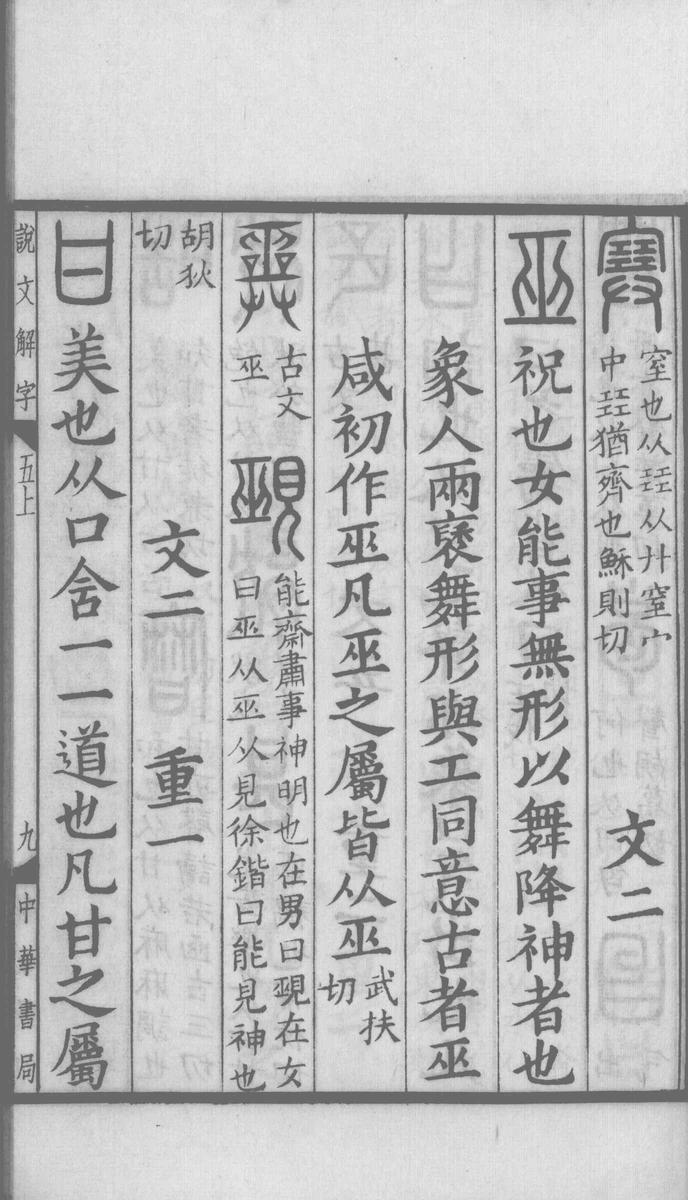 𡫳 窒也从㠭从廾窒宀
中㠭猶齊也穌則切
文二
巫 祝也女能事無形以舞降神者也
象人兩褎舞形與工同意古者巫
咸初作巫凡巫之屬皆从巫 武扶
切
𢍮 古文
巫
覡 能齋肅事神明也在男曰覡在女
曰巫从巫从見徐鍇曰能見神也
胡狄
切
文二 重一
甘 美也从口含一一道也凡甘之屬
說文解字 五上 九 中華書局